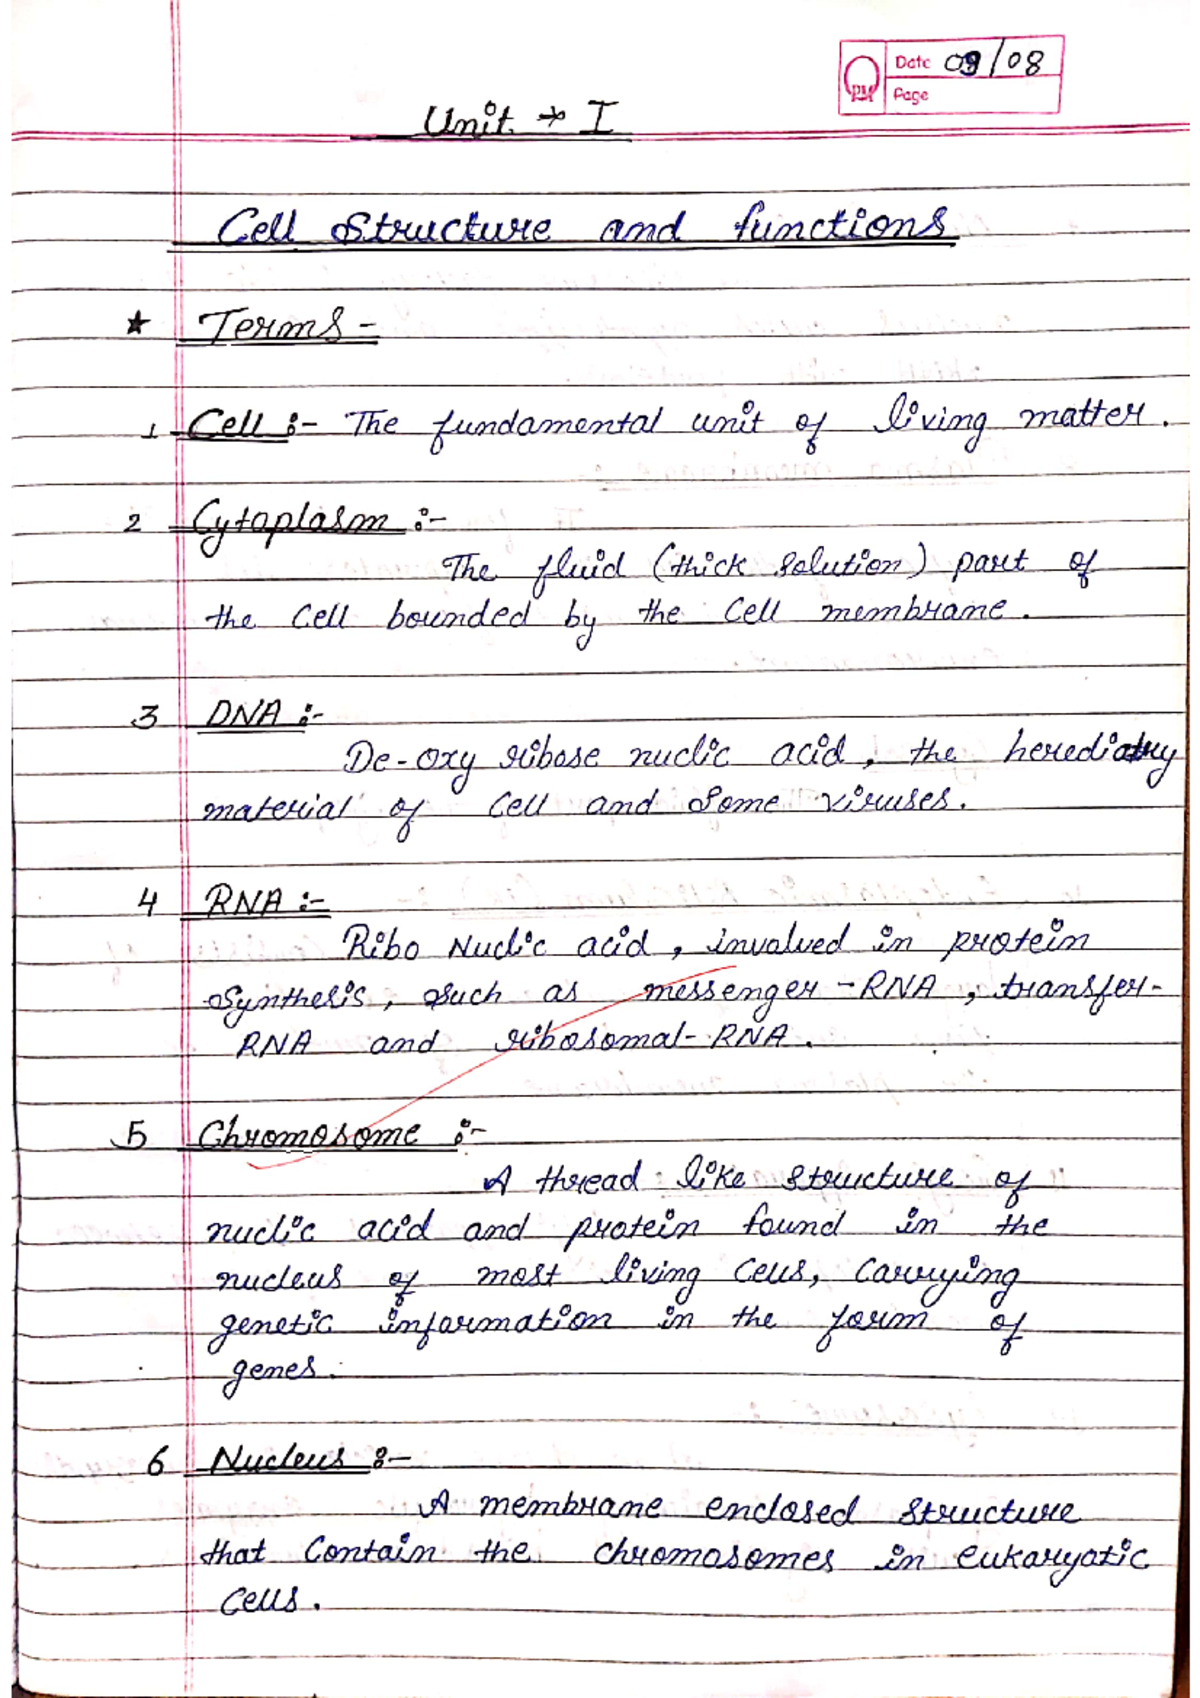 Date 09/08
Page
Unit → I
Cell Structure and functions
★ Terms -
1 Cell :- The fundamental unit of living matter.
2 Cytoplasm :-
The fluid (thick solution) part of
the cell bounded by the cell membrane.
3 DNA :-
De-oxy ribose nuclic acid, the herediatry
material of cell and some viruses.
4 RNA :-
Ribo Nuclic acid, involved in protein
synthesis, such as messenger-RNA, transfer-
RNA and ribosomal-RNA.
5 Chromosome :-
A thread like structure of
nuclic acid and protein found in the
nucleus of most living cells, carrying
genetic information in the form of
genes.
6 Nucleus :-
A membrane enclosed structure
that contain the chromosomes in eukaryotic
cells.